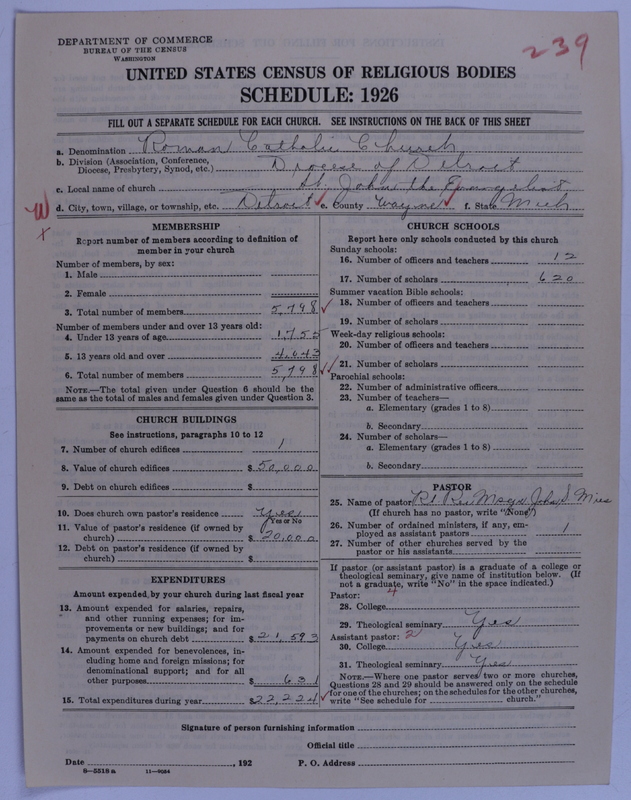 DEPARTMENT OF COMMERCE
BUREAU OF THE CENSUS
WASHINGTON
239
UNITED STATES CENSUS OF RELIGIOUS BODIES
SCHEDULE: 1926
FILL OUT A SEPARATE SCHEDULE FOR EACH CHURCH. SEE INSTRUCTIONS ON THE BACK OF THIS SHEET
a. Denomination Roman Catholic Church
b. Division (Association, Conference, Diocese, Presbytery, Synod, etc.) Diocese of Detroit
c. Local name of church St. John the Evangelist
d. City, town, village, or township, etc. Detroit e. County Wayne f. State Mich
W
x
MEMBERSHIP
Report number of members according to definition of
member in your church
Number of members, by sex:
1. Male
2. Female
3. Total number of members 5,798
Number of members under and over 13 years old:
4. Under 13 years of age 1,755
5. 13 years old and over 4,043
6. Total number of members 5,798
NOTE.—The total given under Question 6 should be the
same as the total of males and females given under Question 3.
CHURCH BUILDINGS
See instructions, paragraphs 10 to 12
7. Number of church edifices 1
8. Value of church edifices $ 50,000
9. Debt on church edifices $
10. Does church own pastor's residence Yes
Yes or No
11. Value of pastor's residence (if owned by
church) $ 20,000
12. Debt on pastor's residence (if owned by
church) $
EXPENDITURES
Amount expended by your church during last fiscal year
13. Amount expended for salaries, repairs,
and other running expenses; for im-
provements or new buildings; and for
payments on church debt $ 21,593
14. Amount expended for benevolences, in-
cluding home and foreign missions; for
denominational support; and for all
other purposes $ 631
15. Total expenditures during year $ 22,224
CHURCH SCHOOLS
Report here only schools conducted by this church
Sunday schools:
16. Number of officers and teachers 12
17. Number of scholars 620
Summer vacation Bible schools:
18. Number of officers and teachers
19. Number of scholars
Week-day religious schools:
20. Number of officers and teachers
21. Number of scholars
Parochial schools:
22. Number of administrative officers
23. Number of teachers—
a. Elementary (grades 1 to 8)
b. Secondary
24. Number of scholars—
a. Elementary (grades 1 to 8)
b. Secondary
PASTOR
25. Name of pastor Rt. Rev Msgr John S.
(If church has no pastor, write "None")
26. Number of ordained ministers, if any, em-
ployed as assistant pastors 1
27. Number of other churches served by the
pastor or his assistants
If pastor (or assistant pastor) is a graduate of a college or
theological seminary, give name of institution below. (If
not a graduate, write "No" in the space indicated.)
Pastor: 4
28. College
29. Theological seminary Yes
Assistant pastor: 2
30. College Yes
31. Theological seminary Yes
NOTE.—Where one pastor serves two or more churches,
Questions 28 and 29 should be answered only on the schedule
for one of the churches; on the schedules for the other churches,
write "See schedule for church."
Signature of person furnishing information
Official title
Date , 192 P. O. Address
6—5518 a 11—9084